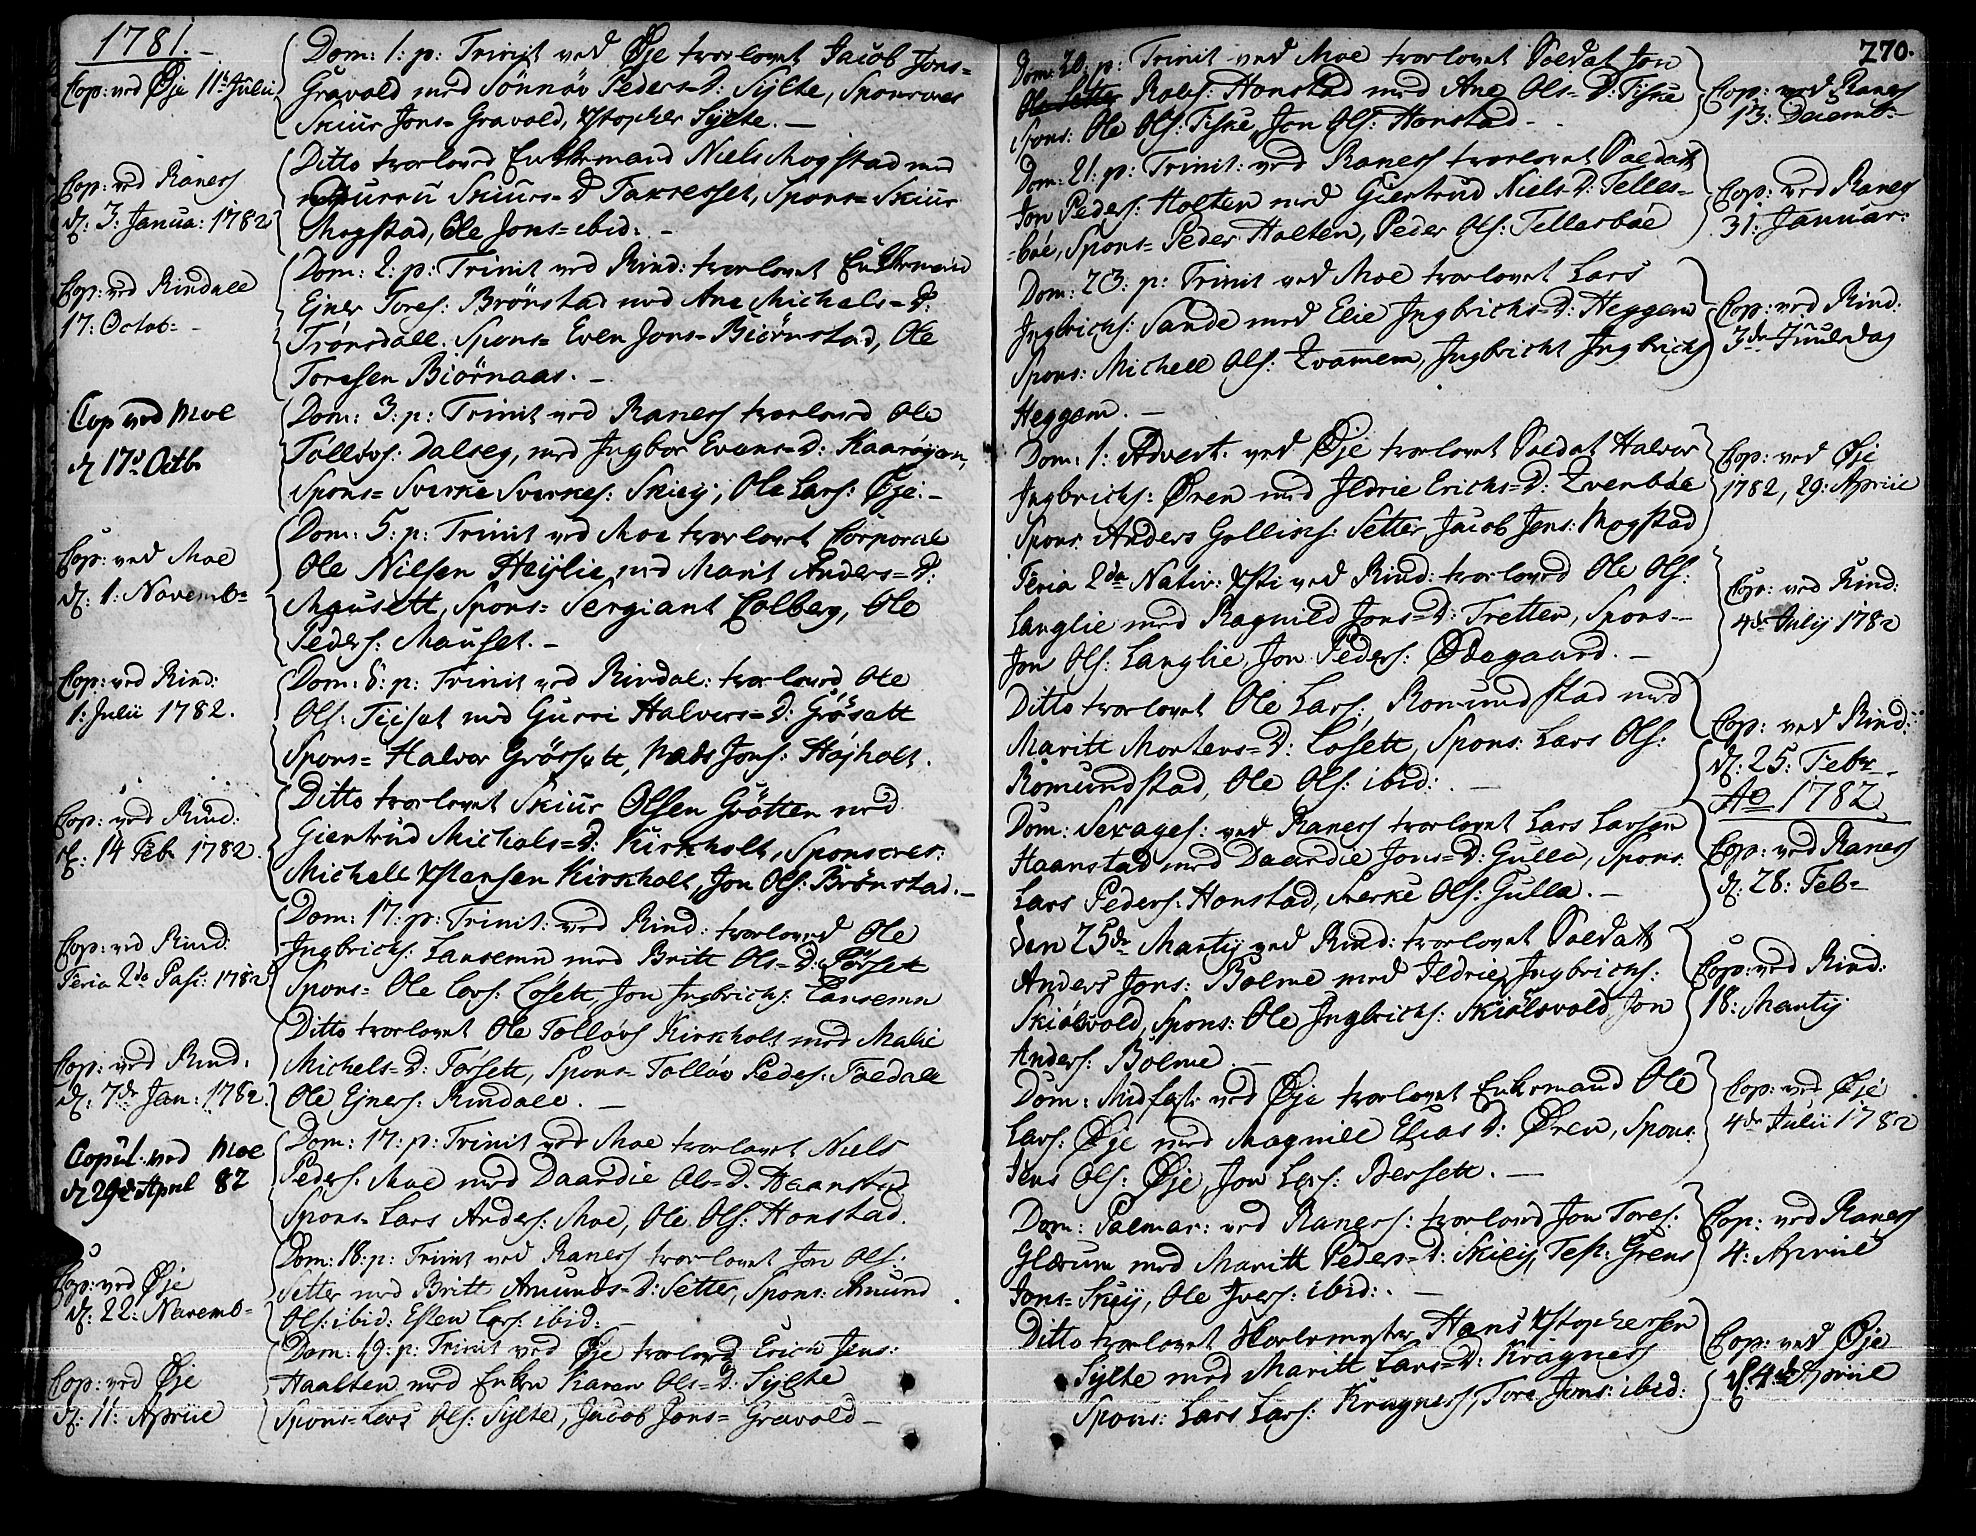 1781.
Cop: ved Øje 11te Julii
Dom: 1: p: Trinit ved Øje trorlovet Jacob Jons=
Gravold med Sönnöv Peders=D: Sylte, Sponsores
Skiur Jons= Gravold, Xstopher Sylte. —
Cop: ved Raness
d: 3: Janua: 1782
Ditto trorloved Enkkemand Niels Mogstad med
Gurru Skiurs=D Tarresset, Spons= Skiur
Mogstad, Ole Jons= ibid: —
Cop: ved Rindale
17: Octob= —
Dom: 2: p: Trinit ved Rind: trorlovet Enkkemand
Ejner Tores: Brönstad med Ane Michals=D:
Trønsdall. Spons= Even Jons= Biörnstad, Ole
Toresen Biörnaas. —
Cop ved Moe
d 17d Octb
Dom: 3: p: Trinit ved Raness trorloved Ole
Tolløvs: Dalseg, med Ingbor Evens=D: Kaarøyan,
Spons= Sverke Sverkes: Skiey, Ole Lars: Øje. —
Cop: ved Moe
d: 1: Novemb=
Dom: 5: p: Trinit ved Moe trorlovet Corporal
Ole Nielsen Heylie med Marit Anders=D:
Mausett, Spons= Sergiant Colberg, Ole
Peders: Mauset. —
Cop: ved Rind:
1: Julii 1782.
Dom: 6: p: Trinit ved Rindal: trorloved Ole
Ols: Tiiset med Gurri Halvors=D: Grösett
Spons= Halvor Grösett, Mads Jons: Højholt.
Cop: ved Rind:
d: 14 Feb 1782.
Ditto trorlovet Skiur Olsen Grötten med
Giertrud Michals=D: Kirkholt, Sponsores:
Michell Xstensen Kirkholt, Jon Ols: Brönstad. —
Cop: ved Rind
Feria 2da Pasc: 1782
Dom: 17: p: Trinit: ved Rind: trorloved Ole
Ingbrichs: Lansemn med Britt Ols=D: Försett
Spons= Ole Lars: Losett, Jon Ingbrichs: Lansemn
Cop: ved Rind:
d: 7de Jan: 1782.
Ditto trorlovet Ole Tolløvs Kirkholt med Malie
Michels=D: Førsett, Spons= Tolløv Peders: Foedall
Ole Ejners: Rindale. —
Copul. ved Moe
d 29de April 82
Dom: 17: p: Trinit ved Moe trorlovet Niels
Peders. Moe med Daardie Ols=D: Haanstad
Spons= Lars Anders: Moe, Ole Ols: Honstad.
Cop: ved Øje
d: 22: Novemb=
Dom: 18: p: Trinit ved Raness trorlovet Jon Ols:
Setter med Britt Amunds=D: Setter, Spons: Amund
Ols: ibid: Esten Lars: ibid: —
Cop: ved Øje
d: 11: Apriil
Dom: 19: p: Trinit ved Øje trorloved Erich Jens:
Haalten med Enken Karen Ols=D: Sylte
Spons= Lars Ols: Sylte, Jacob Jons= Gravold —
270.
Dom: 20: p: Trinit ved Moe trorlovet Soldat Jon
Ole Setter Roals: Honstad med Ane Ols=D: Fiske
Spons: Ole Ols: Fiske, Jon Ols: Honstad —
Cop: ved Raness
13: Decemb:
Dom: 21: p: Trinit: ved Raness trorlovet Soldatt
Jon Peders: Holten med Giertrud Niels D: Telles=
=bøe, Spons= Peder Holten, Peder Ols: Tellesbøe
Cop: ved Raness
31: Januar:
Dom: 23: p: Trinit ved Moe trorlovet Lars
Ingbrichs: Sande med Elie Ingbrichs=D: Heggem
Spons: Michell Ols: Qvammem, Ingbricht Ingbrichs
Heggem. —
Cop: ved Rind:
3de Juuledag
Dom: 1: Advent. ved Øje trorlovet Soldat Halvor
Ingbrichs: Øren med Ildrie Erichs=D: Qvenbøe
Spons: Anders Gollichs: Setter, Jacob Jens: Mogstad
Cop: ved Øje
1782, 29: Apriil
Feria 2da Nativ: Xsti ved Rind: trorloved Ole Ols:
Langlie med Ragnild Jons=D: Tretten, Spons—
Jon Ols: Langlie, Jon Peders: Ødegaard. —
Cop: ved Rind:
4de Julij 1782
Ditto trorlovet Ole Lars: Romundstad med
Maritt Mortens=D: Losett, Spons: Lars Ols:
Romundstad, Ole Ols: ibid: —
Cop: ved Rind:
d: 25: Febr.
Ao 1782
Dom: Sexages: ved Raness trorlovet Lars Larsen
Haanstad med Daardie Jons=D: Gulla, Spons:
Lars Peders: Honstad, Sverke Ols: Gulla. —
Cop: ved Raness
d: 28: Feb=
Den 25de Martij ved Rind: trorlovet Soldatt
Anders Jons: Bolme med Ildrie Ingbrichs:
Skiølsvold, Spons: Ole Ingbrichs: Skiølsvold, Jon
Anders: Bolme. —
Cop: ved Rind:
18: Martij
Dom: Midfast: ved Øje trorlovet Enkemand Ole
Lars: Øje med Magnill Elias D: Øren, Spons
Jens Ols: Øje, Jon Lars: Bersett. —
Cop: ved Øje
4de Julii 1782
Dom: Palmar: ved Raness: trorloved Jon Tores:
Glærum med Maritt Peders=D: Skieij, Test: Grens
Jons= Skeij, Ole Ivers: ibid: . —
Cop: ved Raness
4: Apriil
Ditto trorlovet Skolemester Hans Xstophersen
Sylte med Maritt Lars=D: Kragness
Spons: Lars Lars: Kragness, Tore Jons: ibid:
Cop: ved Øje
d: 4de Apriil